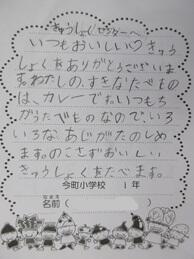 きゅうしょくセンターへ
いつもおいしい♡きゅう
しょくをありがとうございい
ます。わたしの、すきなたべもの
は、カレーです。いつもち
がうたべものなので、いろ
いろな、あじがたのしめ
ます。のこさずおいしい
きゅうしょくをたべます。
今町小学校 1年
名前( )